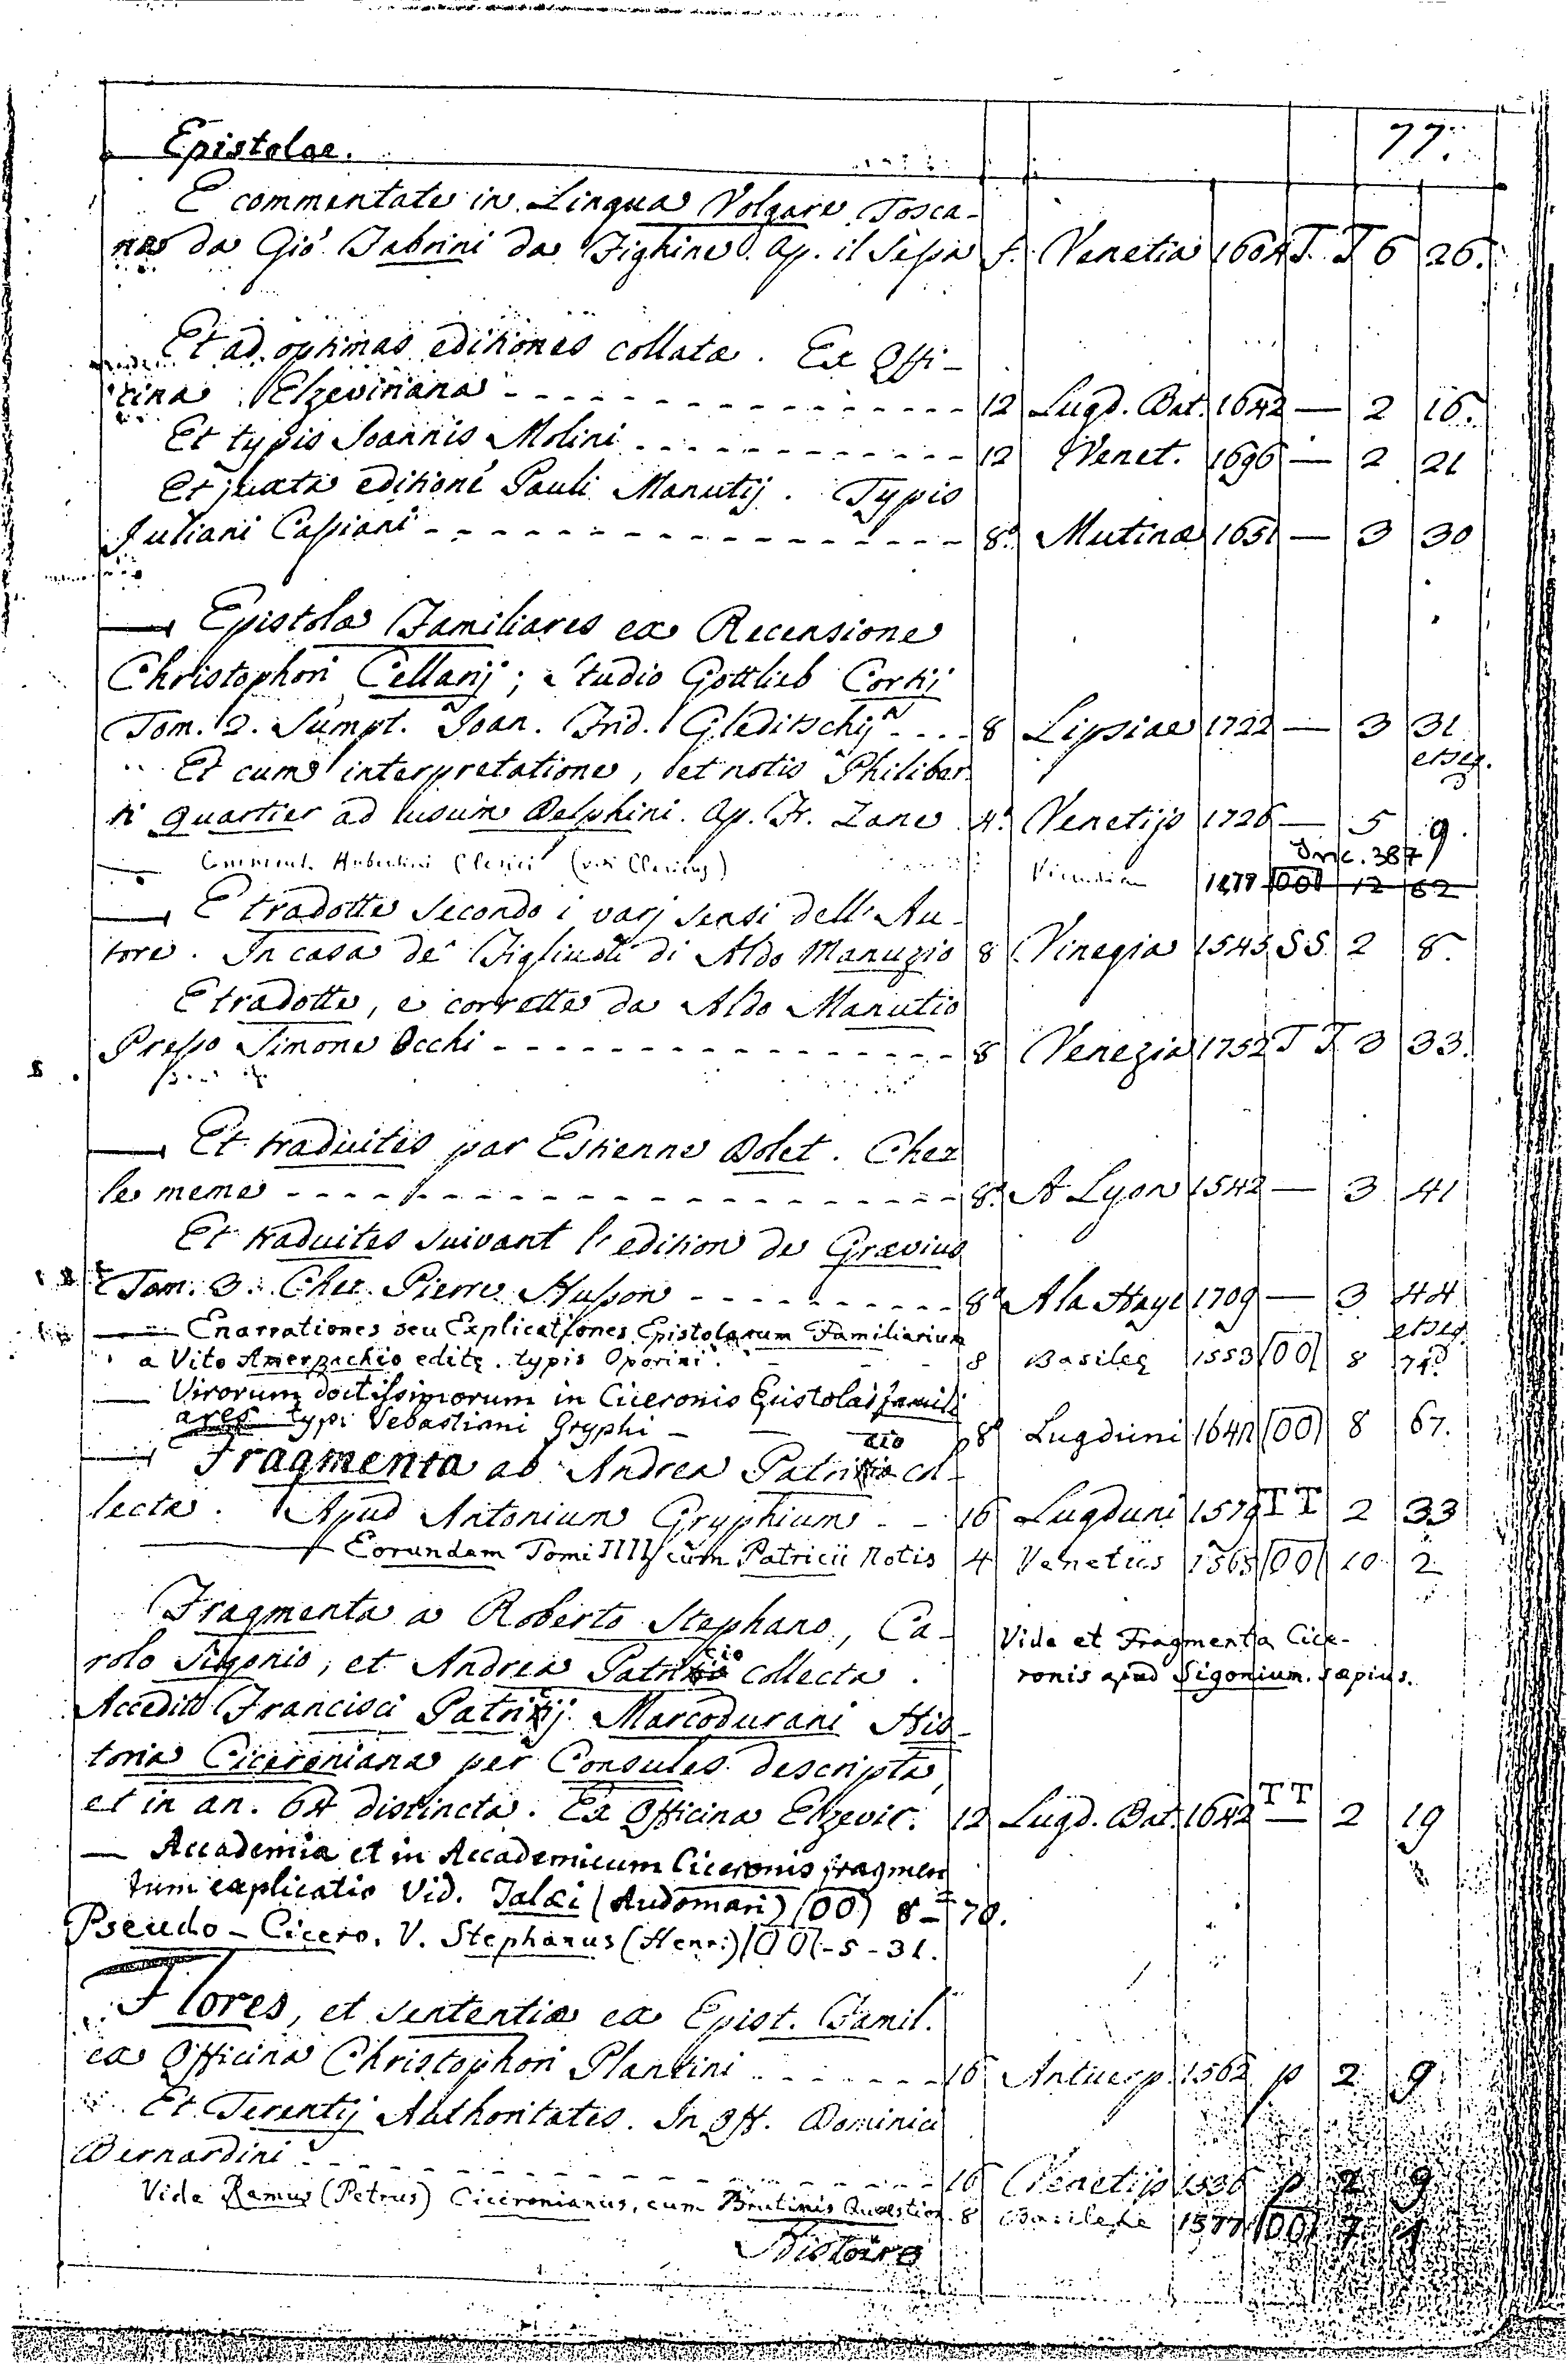 Epistolae. 77.
E commentate in Lingua Volgare Tosca-
na da Gio: Fabrini da Fighine. Ap. il Sessa f. Venetia 1604 T. T 6 26.
Et ad optimas editiones collatæ. Ex Offi-
cina Elzeviriana - - - 12 Lugd. Bat. 1642 — 2 16.
Et typis Joannis Molini - - - 12 Venet. 1696 — 2 21
Et juxta editione Pauli Manutij. Typis
Juliani Cassiani - - - 8.º Mutinæ 1651 — 3 30
— Epistolæ Familiares ex Recensione
Christophori Cellarij; studio Gottlieb Cortij
Tom. 2. Sumpt. Joan. Frid. Gleditschij - - - 8 Lipsiae 1722 — 3 31
etseq.
Et cum interpretatione, et notis Philiber
ti Quartier ad usum Delphini. Ap. Fr. Zane 4.º Venetijs 1726 — 5 9.
Inc. 387
— Comment. Hubertini Clerici (vide Clericus) 1479 00 12 62
— E tradotte secondo i varj sensi dell' Au-
tore. In casa de' Figliuoli di Aldo Manuzio 8 Vinegia 1545 SS 2 8.
E tradotte, e corrette da Aldo Manutio
Presso Simone Occhi - - - 8 Venezia 1752 T T. 3 33.
— Et traduites par Estienne Dolet. Chez
le meme - - - 8.º A Lyon 1542 — 3 41
Et traduites suivant l'edition de Grævius
Tom. 3. Chez Pierre Husson - - - 8.º A la Haye 1709 — 3 44
etseq.
— Enarrationes seu Explicationes Epistolarum Familiarium
a Vito Amerpachio editę. typis Oporini. - - - 8 Basileę 1553 00 8 74.
— Virorum doctissimorum in Ciceronis Epistolas famili
ares typi Sebastiani Gryphi - - 8º Lugduni 00 8 67.
— Fragmenta ab Andrea Patricio col-
lecta. Apud Antonium Gryphium - - 16 Lugduni 1579 TT 2 33
— Eorundem Tomi IIII cum Patricii Notis 4 Venetiis 1565 00 10 2
Fragmenta a Roberto Stephano, Ca-
Vide et Fragmenta Cice-
rolo Sigonio, et Andrea Patricio collecta.
ronis apud Sigonium. sæpius.
Accedit Francisci Patricij Marcodurani His-
toria Ciceroniana per Consules descripta,
et in an. 64 distincta. Ex Officina Elzevir. 12 Lugd. Bat. 1642 TT — 2 19
— Accademia et in Accademicum Ciceronis fragmen
tum explicatio Vid. Talæi (Audomari) 00 8 - 70.
Pseudo - Cicero. V. Stephanus (Henr:) 00 - 5 - 31.
Flores, et sententiæ ex Epist. Famil.
ex Officina Christophori Plantini - - - 16 Antuerp. 1562 p 2 9
Et Terentij Authoritates. In Off. Dominici
Bernardini - - - 16 Venetijs 1536 p 2 9
Vide Ramus (Petrus) Ciceronianus, cum Brutinis Quæstion. 8 Basileæ 1577 00 7 1
Histoire